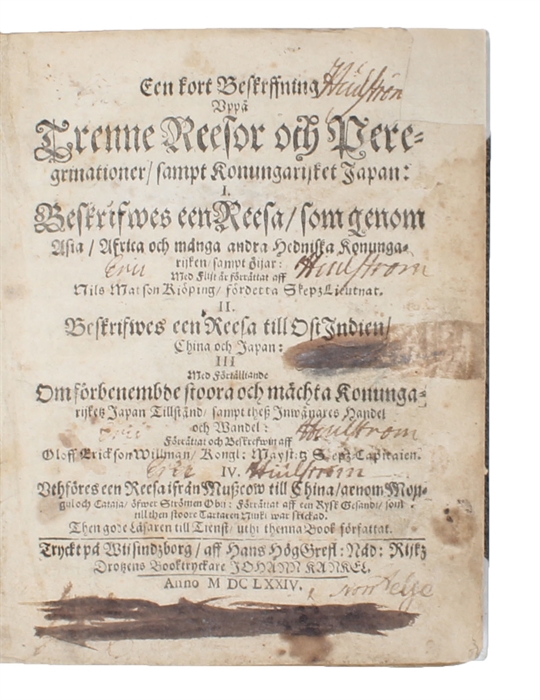 Een kort Beskrffning Hiulström
Uppå
Trenne Reesor och Pere-
grinationer/ sampt Konungarijket Japan:
I.
Beskrifwes een Reesa/ som genom
Asia/ Africa och många andra Hedniska Konunga-
rijken/ sampt Öijar:
Eric Hiulstrom
Med Flijt är förrättat aff
Nils Matson Kiöping/ fördetta SkepzLieutnat.
II.
Beskrifwes een Reesa till OstIndien/
China och Japan:
III
Med Förtälliande
Om förbenembde stoora och mächta Konunga-
rijketz Japan Tillstånd/ sampt theß Inwånares Handel
och Wandel:
Eric Hiulstrom
Förrättat och Beskrefwin aff
Oloff Erickson Willman/ Kongl: Mayst:tz Skepz-Capitaien.
IV.
Eric Hiulstrom
Uthföres een Reesa ifrån Mußcow till China/ genom Mon-
gul och Cataja/ öfwer Strömen Obij: Förrättat aff een Rysk Gesandt/ som
till then stoore Tartaren Niuki war skickad.
Then gode Läsaren till Tienst/ uthi thenna Book författat.
Tryckt på Wijsindzborg/ aff Hans HögGrefl: Nåd: Rijkz
Drotzens Booktryckare JOHANN KANKEL.
Anno M DC LXXIV.